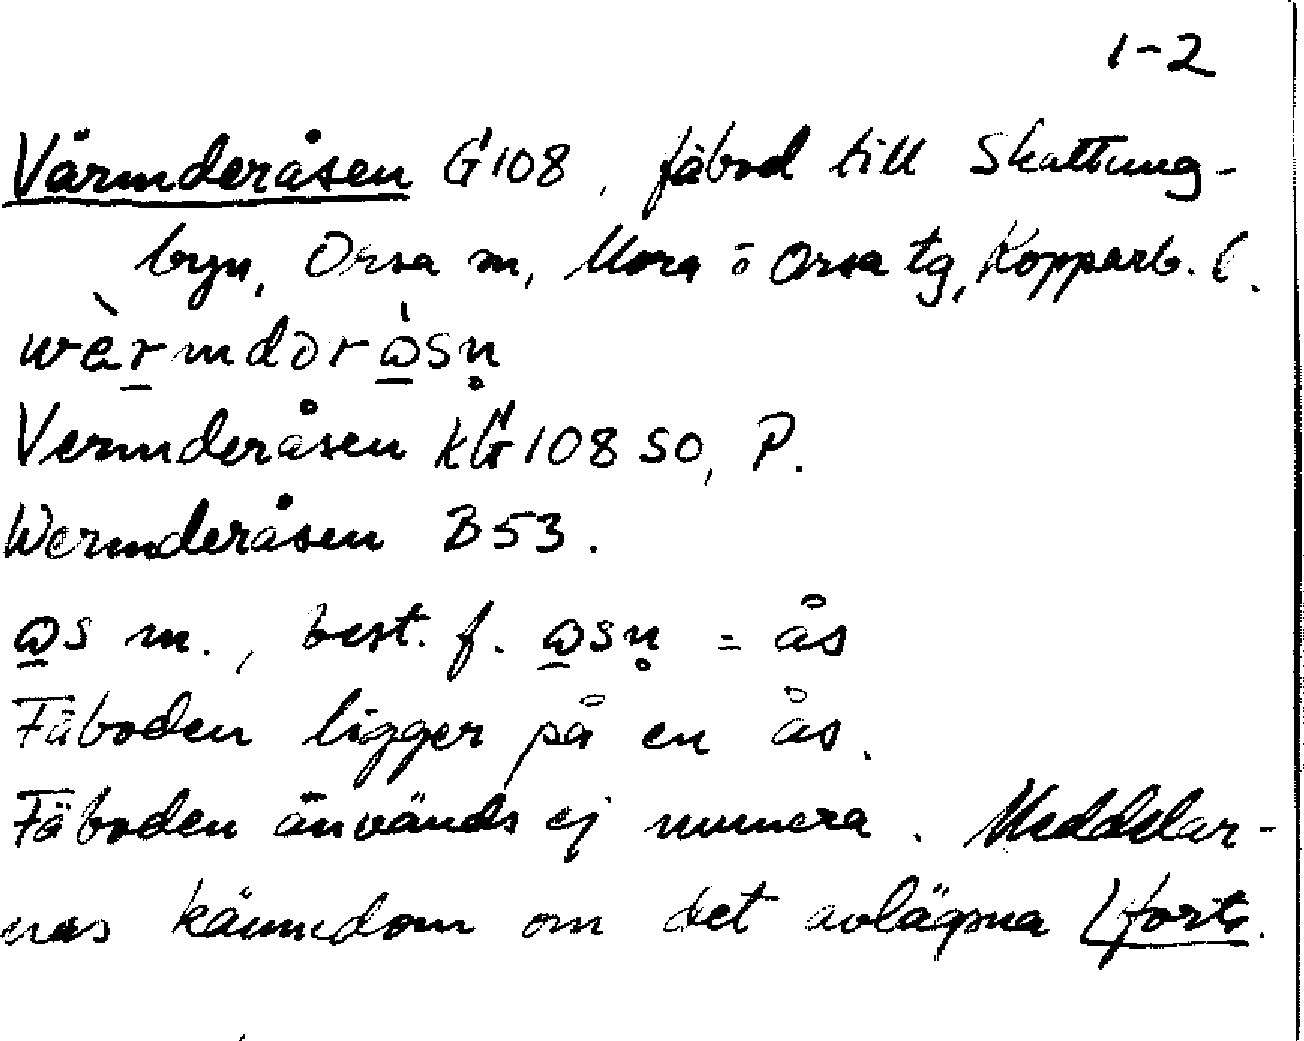 1-2
Värmderåsen G108, fäbod till Skattung-
byn, Orsa sn, Mora o Orsa tg, Kopparb. l.
wèrmdəråsn̥
Vermderåsen kG108 SO, P.
Wermderåsen B53.
m., best. f. = ås
Fäboden ligger på en ås.
Fäboden används ej numera. Meddelar-
nas kännedom om det avlägsna (forts.